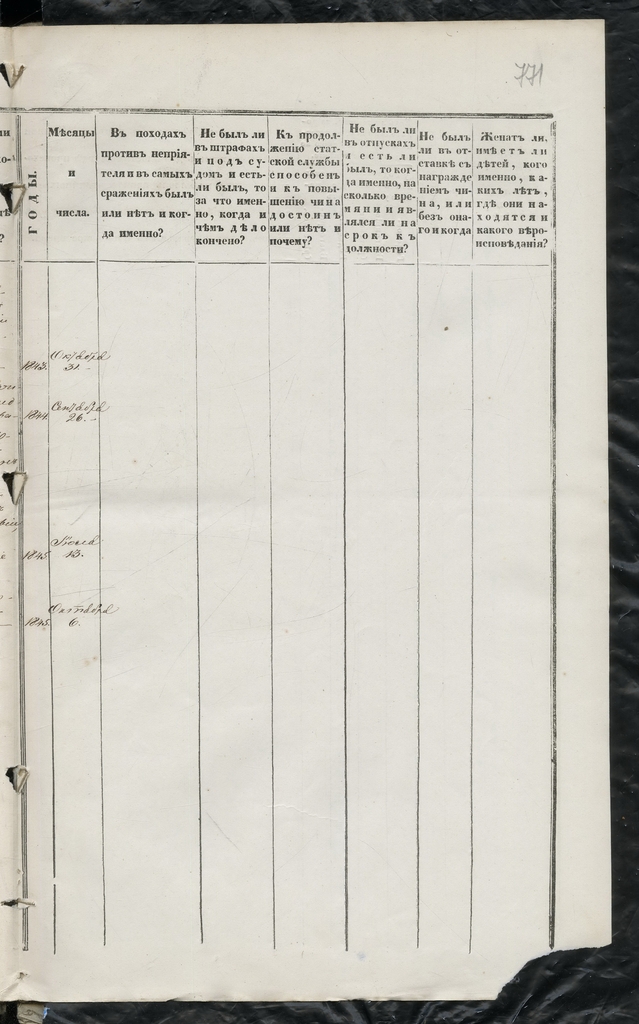 771
ГОДЫ.
Мѣсяцы
и
числа.
Въ походахъ
противъ непрія-
теля и въ самыхъ
сраженіяхъ былъ
или нѣтъ и ког-
да именно?
Не былъ ли
въ штрафахъ
и подъ су-
домъ и есть-
ли былъ, то
за что имен-
но, когда и
чѣмъ дѣло
кончено?
Къ продол-
женію стат-
ской службы
способенъ
и къ повы-
шенію чина
достоинъ
или нѣтъ и
почему?
Не былъ ли
въ отпускахъ
и есть ли
былъ, то ког-
да именно, на
сколько вре-
мяни и яв-
лялся ли на
срокъ къ
должности?
Не былъ
ли въ от-
ставкѣ съ
награжде-
ніемъ чи-
на, или
безъ она-
го и когда
Женатъ ли,
имѣетъ ли
дѣтей, кого
именно, ка-
кихъ лѣтъ,
гдѣ они на-
ходятся и
какого вѣро-
исповѣданія?
Октября
1843. 31.
Сентября
1844. 26.
Іюля
1845. 13.
Октября
1845. 6.